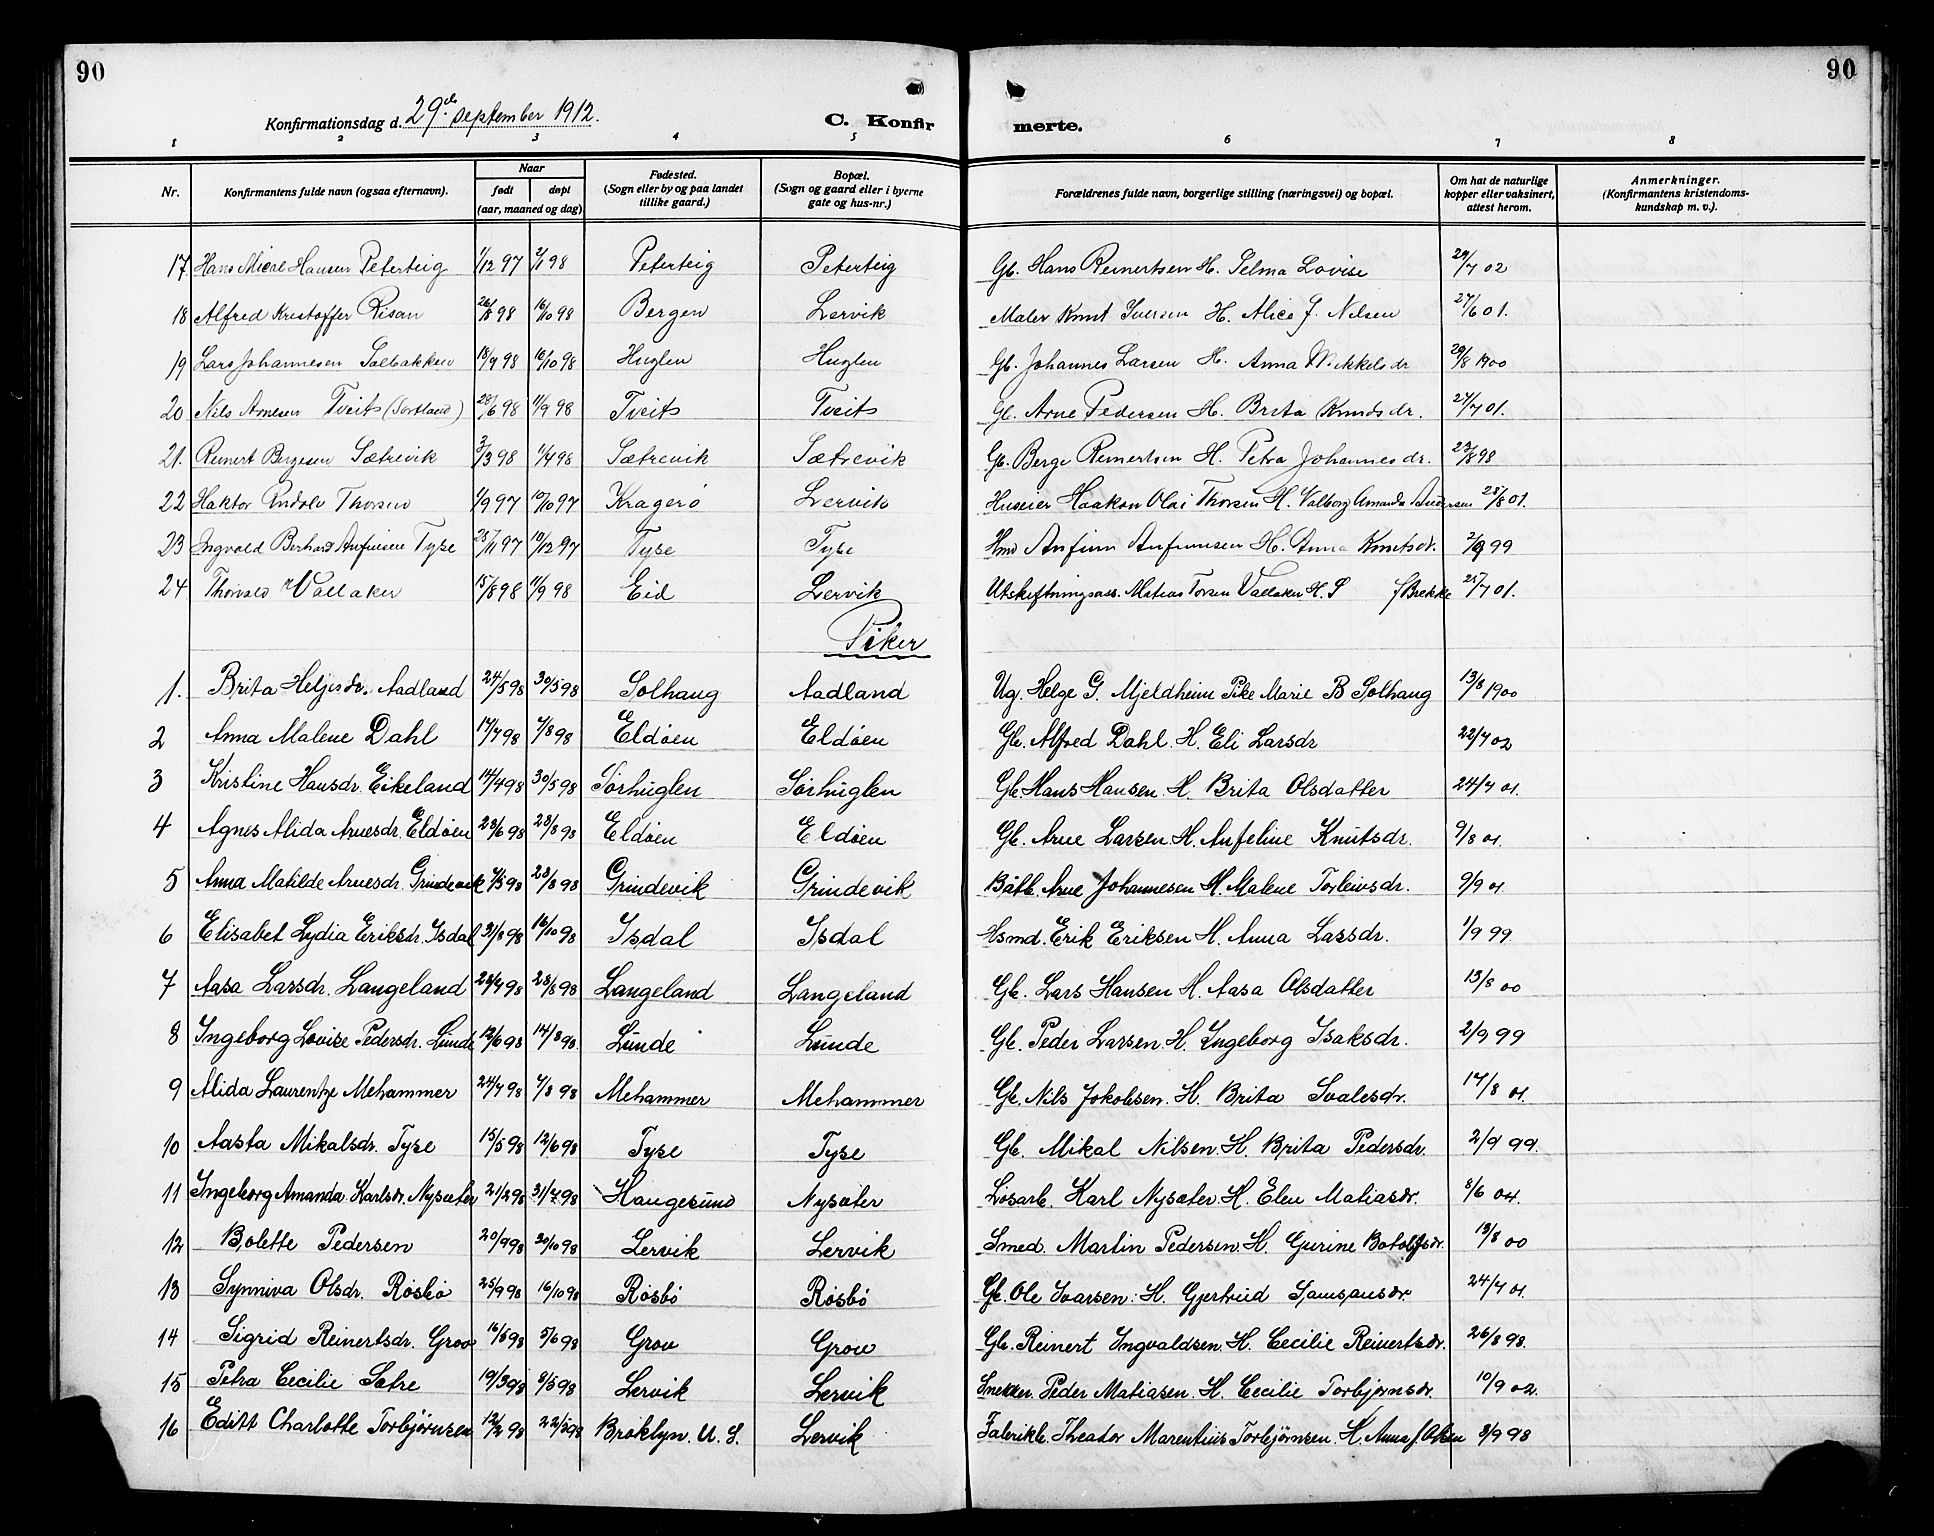 90
90
Konfirmationsdag d. 29de september 1912.
C. Konfirmerte.
1 2 3 4 5 6 7 8
Nr. | Konfirmantens fulde navn (ogsaa efternavn). | Naar født døpt (aar, maaned og dag) | Fødested. (Sogn eller by og paa landet tillike gaard.) | Bopæl. (Sogn og gaard eller i byerne gate og hus-nr.) | Forældrenes fulde navn, borgerlige stilling (næringsvei) og bopæl. | Om hat de naturlige kopper eller vaksinert, attest herom. | Anmerkninger. (Konfirmantens kristendomskundskap m. v.).
17 Hans Mical Hansen Peterteig 1/12 97 2/1 98 Peterteig Peterteig Gb. Hans Reinertsen H. Selma Lovise 29/7 02
18 Alfred Kristoffer Risan 26/8 98 16/10 98 Bergen Lervik Maler Knut Iversen H. Alice J. Nilsen 27/6 01.
19 Lars Johannesen Solbakken 18/9 98 16/10 98 Huglen Huglen Gb. Johannes Larsen H. Anna Mikkelsdr 29/8 1900
20 Nils Arnesen Tveit (Sortland) 28/6 98 11/9 98 Tveit Tveit Gb. Arne Pedersen H. Brita Knudsdr. 24/7 01.
21. Reinert Bergesen Sætrevik 3/3 98 11/4 98 Sætrevik Sætrevik Gb. Berge Reinertsen H. Petra Johannesdr. 23/8 98
22 Haktor Endolv Thorsen 1/9 97 10/10 97 Kragerö Lervik Huseier Haakon Olai Thorsen H. Valborg Amanda Andersen 28/8 01.
23 Ingvald Berhard Anfinsen Tyse 25/11 97 19/12 97 Tyse Tyse Hmd Anfinn Anfinnsen H. Anna Knutsdr. 2/9 99
24 Thorvald Vallaker 15/8 98 11/9 98 Eid Lervik Utskiftningsass. Matias Torsen Vallaker H. S f Brekke 25/7 01.
Piker
1. Brita Heljesdr. Aadland 24/5 98 30/5 98 Solhaug Aadland Ug. Helge G. Mjeldheim Pike Marie B Solhaug 13/8 1900
2 Anna Malene Dahl 14/7 98 7/8 98 Eldöen Eldöen Gb. Alfred Dahl. H. Eli Larsdr 22/7 02
3 Kristine Hansdr. Eikeland 14/4 98 30/5 98 Sörhuglen Sörhuglen Gb. Hans Hansen. H. Brita Olsdatter 24/7 01.
4 Agnes Alida Arnesdr. Eldöen 28/6 98 28/8 98 Eldöen Eldöen Gb. Arne Larsen H. Anfeline Knutsdr. 9/8 01.
5 Anna Matilde Arnesdr. Grindevik 7/5 98 28/8 98 Grindevik Grindevik Båtb. Arne Johannesen H. Malene Torleivsdr. 9/9 01
6 Elisabet Lydia Eriksdr. Isdal 31/8 98 16/10 98 Isdal Isdal Hsmd. Erik Eriksen H. Anna Larsdr. 1/9 99
7 Aasa Larsdr. Langeland 28/7 98 28/8 98 Langeland Langeland Gb. Lars Hansen H. Aasa Olsdatter 13/8 00
8 Ingeborg Lovise Pedersdr. Lunde 12/6 98 14/8 98. Lunde Lunde Gb. Peder Larsen. H. Ingeborg Isaksdr. 2/9 99
9 Alida Laurentze Mehammer 24/7 98 7/8 98 Mehammer Mehammer Gb. Nils Jokobsen. H. Brita Svalesdr. 17/8 01.
10 Aasta Mikalsdr. Tyse 15/5 98 12/6 98 Tyse Tyse Gb. Mikal Nilsen. H. Brita Pedersdr. 2/9 99.
11 Ingeborg Amanda Karlsdr. Nysæter 21/2 98 31/7 98 Haugesund Nysæter Lösarb. Karl Nysæter. H. Elen Matiasdr. 8/6 04.
12 Bolette Pedersen 20/9 98 30/10 98 Lervik Lervik Smed. Martin Pedersen. H. Gurine Botolfsdr. 13/8 00
13 Synniva Olsdr. Rösbö 25/9 98 16/10 98 Rösbö Rösbö Gb. Ole Ivarsen. H. Gjertrud Samsonsdr 24/7 01.
14 Sigrid Reinertsdr. Grov 16/5 98 5/6 98 Grov Grov Gb. Reinert Ingvaldsen. H. Cecilie Reinertsdr. 26/8 98.
15 Petra Cecilie Sætre 19/3 98 8/5 98 Lervik Lervik Snekker. Peder Matiasen. H. Cecilie Torbjörnsdr. 10/9 02.
16 Editt Charlotte Torbjörnsen 12/2 98 22/5 98 Broklyn. U. S. Lervik Fabrikb. Theador Marentius Torbjörnsen. H. Anna J. Olsen 3/9 98